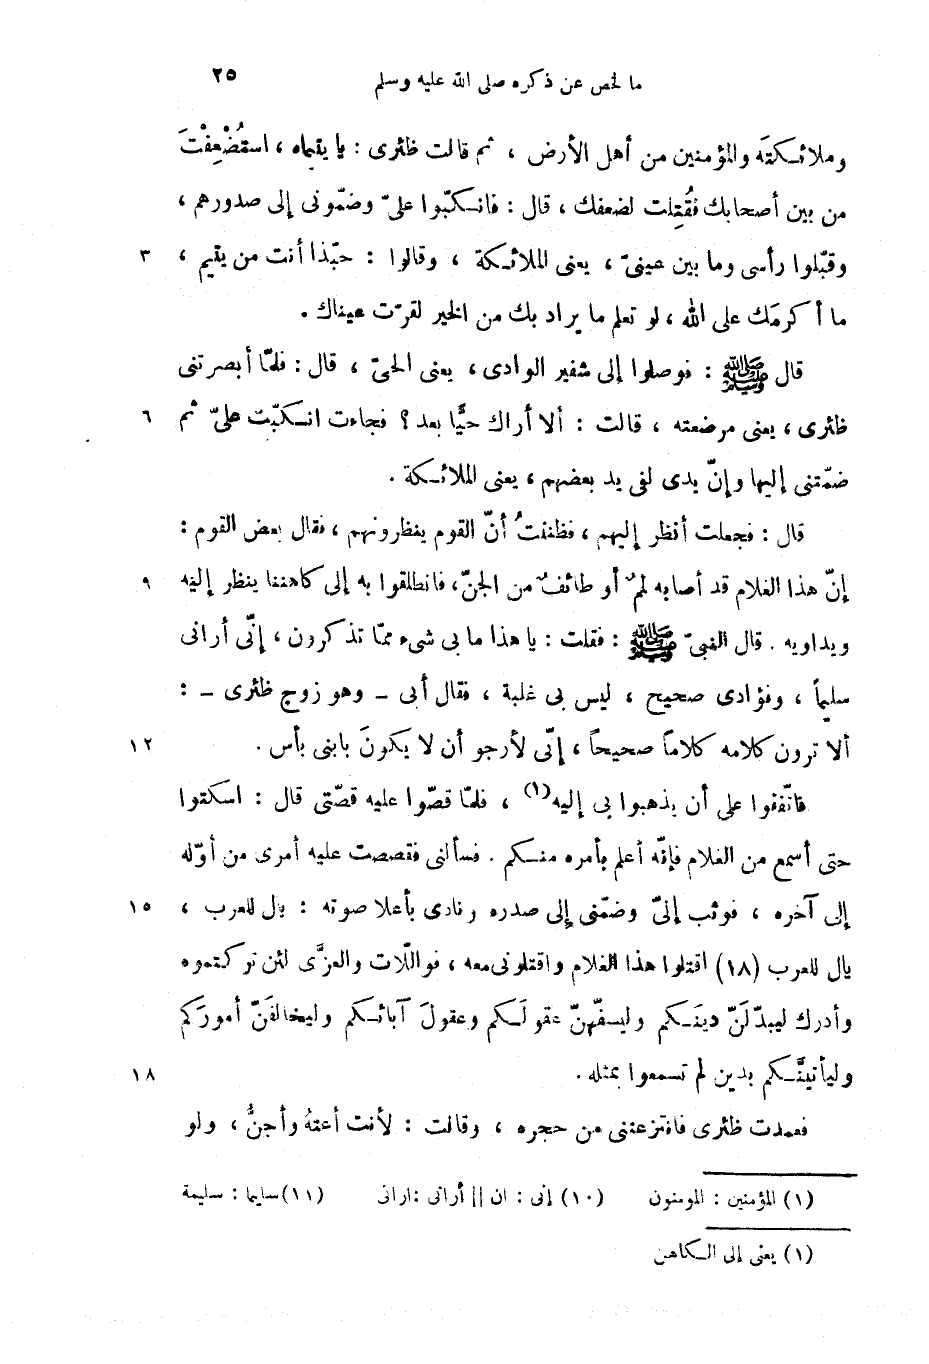 ما لخص عن ذكره صلى الله عليه وسلم ٢٥
وملائكتَه والمؤمنين من أهل الأرض ، ثم قالت ظئرى : يا يتيماه ، استُضْعِفْتَ
من بين أصحابك فقُتِلت لضعفك ، قال : فانكبّوا علىّ وضمّونى إلى صدورهم ،
وقبّلوا رأسى وما بين عينىّ ، يعنى الملائكة ، وقالوا : حبّذا أنت من يتيم ، ٣
ما أكرمَك على الله ، لو تعلم ما يراد بك من الخير لقرّت عيناك .
قال ﷺ : فوصلوا إلى شفير الوادى ، يعنى الحىّ ، قال : فلمّا أبصرتنى
ظئرى ، يعنى مرضعته ، قالت : ألا أراك حيًّا بعد ؟ فجاءت انكبّت علىّ ثم ٦
ضمّتنى إليها وإنّ يدى لفى يد بعضهم ، يعنى الملائكة .
قال : فجعلت أنظر إليهم ، فظننتُ أنّ القوم ينظرونهم ، فقال بعض القوم :
إنّ هذا الغلام قد أصابه لممٌ أو طائفٌ من الجنّ، فانطلقوا به إلى كاهننا ينظر إليه ٩
ويداويه . قال النبىّ ﷺ : فقلت : يا هذا ما بى شىء ممّا تذكرون ، إنّى أرانى
سليماً ، وفؤادى صحيح ، ليس بى غلبة ، فقال أبى – وهو زوج ظئرى – :
ألا ترون كلامه كلاماً صحيحاً ، إنّى لأرجو أن لا يكونَ بابنى بأس . ١٢
فاتّفقوا على أن يذهبوا بى إليه(١) ، فلمّا قصّوا عليه قصّتى قال : اسكتوا
حتى أسمع من الغلام فإنّه أعلم بأمره منكم . فسألنى فقصصت عليه أمرى من أوّله
إلى آخره ، فوثب إلىّ وضمّنى إلى صدره ونادى بأعلا صوته : يال للعرب ، ١٥
يال للعرب (١٨) اقتلوا هذا الغلام واقتلونى معه ، فواللّات والعزَّى لئن تركتموه
وأدرك ليبدّلَنّ دينَكم وليسفّهنّ عقولَكم وعقولَ آبائكم وليخالفَنّ أمورَكم
وليأتينَّكم بدين لم تسمعوا بمثله . ١٨
فعمدت ظئرى فانتزعتنى من حجره ، وقالت : لأنت أعتهُ وأجنُّ ، ولو
(١) المؤمنين : المومنون (١٠) إنى : ان || أرانى :ارانى (١١) سليما : سليمة
(١) يعنى إلى الكاهن